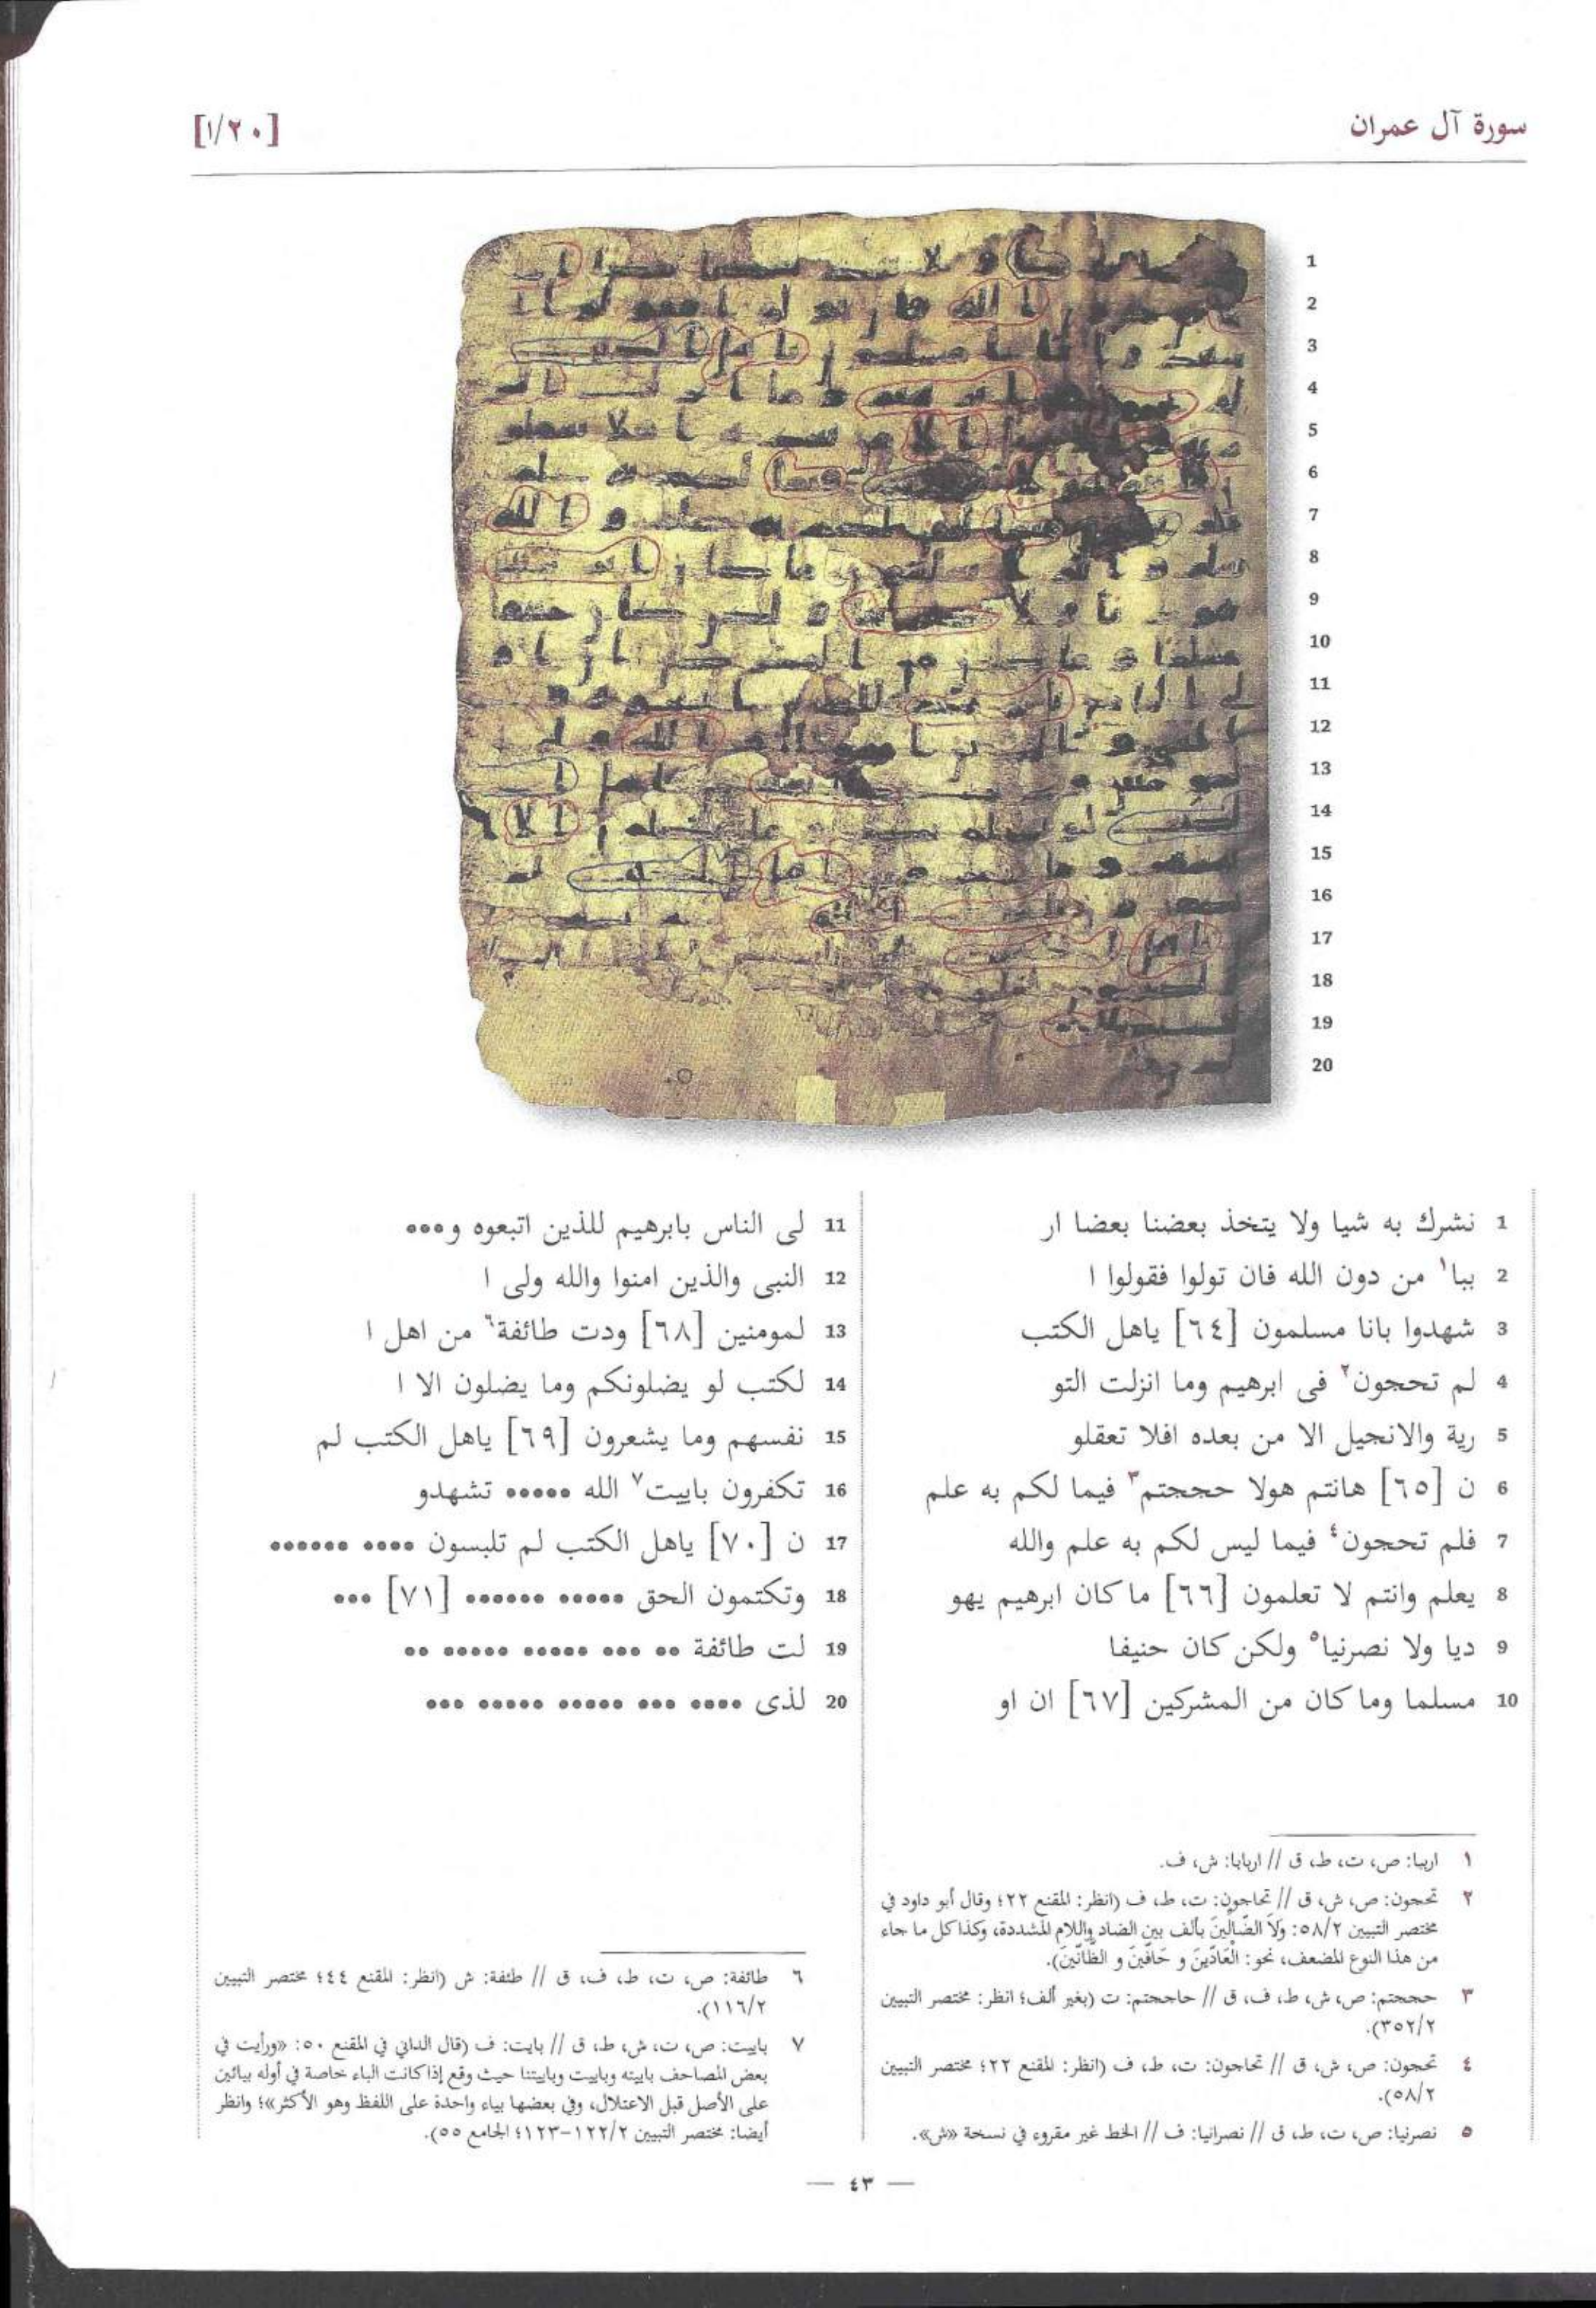 سورة آل عمران
[١/٢٠]
1
2
3
4
5
6
7
8
9
10
11
12
13
14
15
16
17
18
19
20
1 نشرك به شيا ولا يتخذ بعضنا بعضا ار
2 ببا١ من دون الله فان تولوا فقولوا ا
3 شهدوا بانا مسلمون [٦٤] ياهل الكتب
4 لم تحجون٢ فى ابرهيم وما انزلت التو
5 رية والانجيل الا من بعده افلا تعقلو
6 ن [٦٥] هانتم هولا حججتم٣ فيما لكم به علم
7 فلم تحجون٤ فيما ليس لكم به علم والله
8 يعلم وانتم لا تعلمون [٦٦] ما كان ابرهيم يهو
9 ديا ولا نصرنيا٥ ولكن كان حنيفا
10 مسلما وما كان من المشركين [٦٧] ان او
11 لى الناس بابرهيم للذين اتبعوه و•••
12 النبى والذين امنوا والله ولى ا
13 لمومنين [٦٨] ودت طائفة٦ من اهل ا
14 لكتب لو يضلونكم وما يضلون الا ا
15 نفسهم وما يشعرون [٦٩] ياهل الكتب لم
16 تكفرون باييت٧ الله ••••• تشهدو
17 ن [٧٠] ياهل الكتب لم تلبسون •••• ••••••
18 وتكتمون الحق ••••• •••••• [٧١] •••
19 لت طائفة •• ••• ••••• ••••• ••
20 لذى •••• ••• ••••• ••••• •••
١ اربيا: ص، ت، ط، ق // اربابا: ش، ف.
٢ تحجون: ص، ش، ق // تحاجون: ت، ط، ف (انظر: المقنع ٢٢؛ وقال أبو داود في
مختصر التبيين ٥٨/٢: وَلَا الضَّالِّينَ بألف بين الضاد واللام المشددة، وكذا كل ما جاء
من هذا النوع المضعف، نحو: الْعَادِّينَ و حَافِّينَ و الظَّانِّينَ).
٣ حججتم: ص، ش، ط، ف، ق // حاججتم: ت (بغير ألف؛ انظر: مختصر التبيين
٣٥٢/٢).
٤ تحجون: ص، ش، ق // تحاجون: ت، ط، ف (انظر: المقنع ٢٢؛ مختصر التبيين
٥٨/٢).
٥ نصرنيا: ص، ت، ط، ق // نصرانيا: ف // الخط غير مقروء في نسخة «ش».
٦ طائفة: ص، ت، ط، ف، ق // طئفة: ش (انظر: المقنع ٤٤؛ مختصر التبيين
١١٦/٢).
٧ باييت: ص، ت، ش، ط، ق // بايت: ف (قال الداني في المقنع ٥٠: «ورأيت في
بعض المصاحف باييته وباييت وباييتنا حيث وقع إذا كانت الباء خاصة في أوله بيائين
على الأصل قبل الاعتلال، وفي بعضها بياء واحدة على اللفظ وهو الأكثر»؛ وانظر
أيضا: مختصر التبيين ١٢٢/٢-١٢٣؛ الجامع ٥٥).
— ٤٣ —